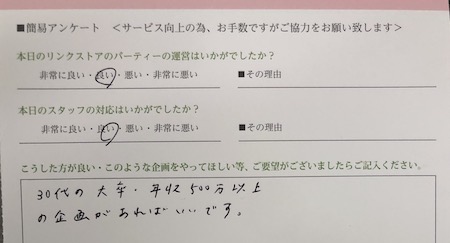 ■簡易アンケート ＜サービス向上の為、お手数ですがご協力をお願い致します＞
本日のリンクストアのパーティーの運営はいかがでしたか？
非常に良い・良い・悪い・非常に悪い ■その理由
本日のスタッフの対応はいかがでしたか？
非常に良い・良い・悪い・非常に悪い ■その理由
こうした方が良い・このような企画をやってほしい等、ご要望がございましたらご記入ください。
30代の大卒・年収500万以上
の企画があればいいです。